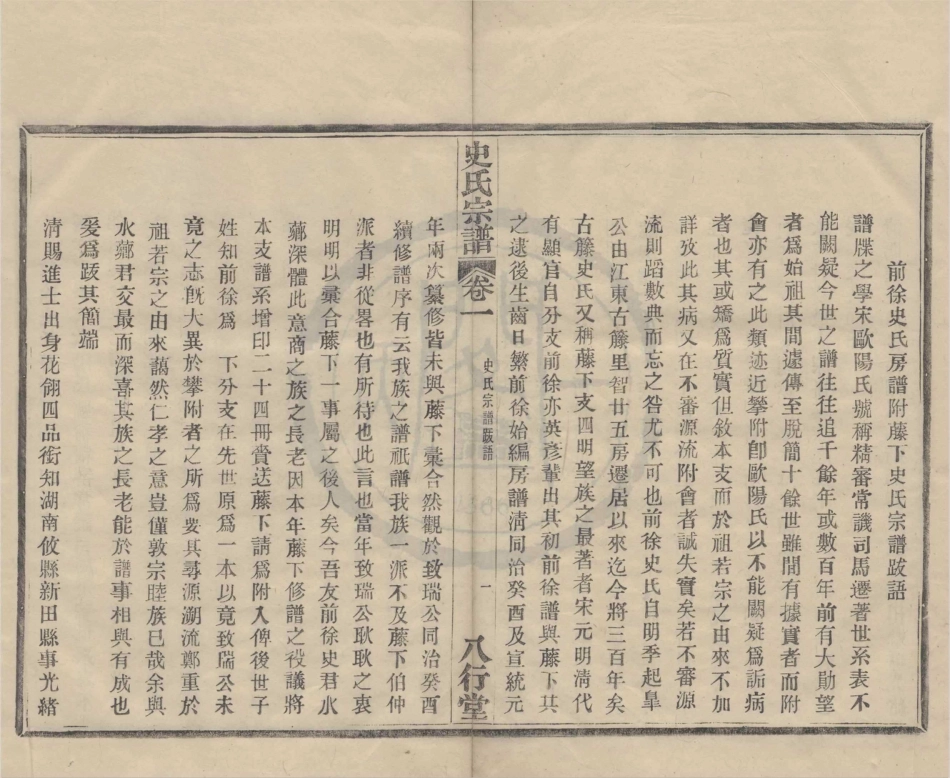 前徐史氏房譜附藤下史氏宗譜跋語
譜牒之學宋歐陽氏號稱精審常譏司馬遷著世系表不
能闕疑今世之譜往往追千餘年或數百年前有大勛望
者爲始祖其間遞傳至脫簡十餘世雖間有據實者而附
會亦有之此類迹近攀附卽歐陽氏以不能闕疑爲詬病
者也其或矯爲質實但敘本支而於祖若宗之由來不加
詳攷此其病又在不審源流附會者誠失實矣若不審源
流則蹈數典而忘之咎尤不可也前徐史氏自明季起臯
公由江東古籐里智廿五房遷居以來迄今將三百年矣
古籐史氏又稱藤下支四明望族之最著者宋元明清代
有顯官自分支前徐亦英彥輩出其初前徐譜與藤下其
之逮後生齒日繁前徐始編房譜清同治癸酉及宣統元
史氏宗譜 卷一
史氏宗譜跋語
一
八行堂
年兩次纂修皆未與藤下彙合然觀於致瑞公同治癸酉
續修譜序有云我族之譜祇譜我族一派不及藤下伯仲
派者非從畧也有所待也此言也當年致瑞公耿耿之衷
明明以彙合藤下一事屬之後人矣今吾友前徐史君水
薌深體此意商之族之長老因本年藤下修譜之役議將
本支譜系增印二十四冊賫送藤下請爲附入俾後世子
姓知前徐爲 下分支在先世原爲一本以竟致瑞公未
竟之志旣大異於攀附者之所爲要其尋源溯流鄭重於
祖若宗之由來藹然仁孝之意豈僅敦宗睦族已哉余與
水薌君交最而深喜其族之長老能於譜事相與有成也
爰爲跋其簡端
清賜進士出身花翎四品銜知湖南攸縣新田縣事光緒